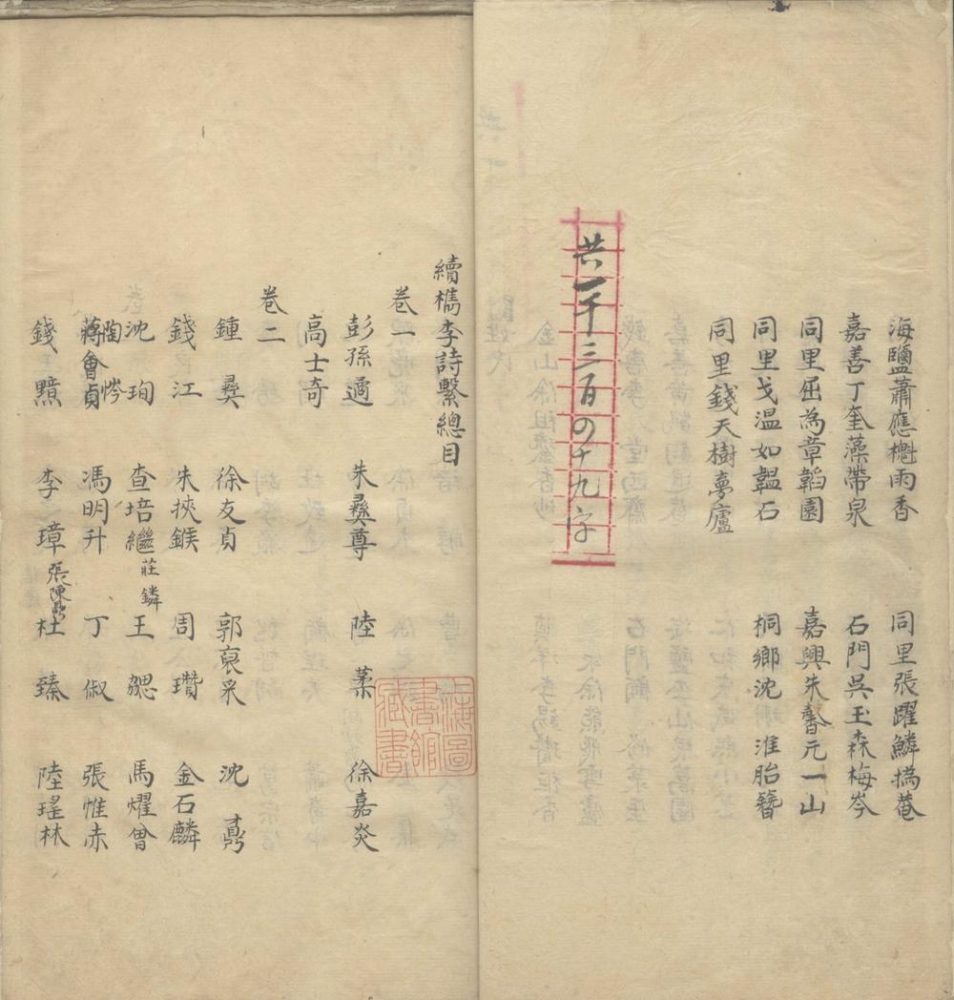 海鹽蕭應櫆雨香 同里張躍鱗撝菴
嘉善丁奎藻帶泉 石門吳玉森梅岑
同里屈為章韜園 嘉興朱馨元一山
同里戈温如韞石 桐鄉沈淮胎簪
同里錢天樹夢廬
共一千三百四十九字
續檇李詩繫總目
卷一
彭孫遹 朱彝尊 陸葇 徐嘉炎
高士奇
卷二
鍾彝 徐友貞 郭裒采 沈鼑
錢江 朱挾鍭 周瓚 金石麟
沈珣 查培繼 莊鏻 王勰 馬燿曾
陶愕
蔣會貞 馮明升 丁俶 張惟赤
錢黯 李璋 杜臻 陸瑤林
海圖書館臧書